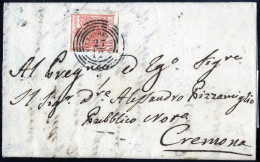 27
Al Pregno ed Egr. Sigre
Il Sigr. Dre Alessandro Pizzamiglio
Pubblico Nora
Cremona